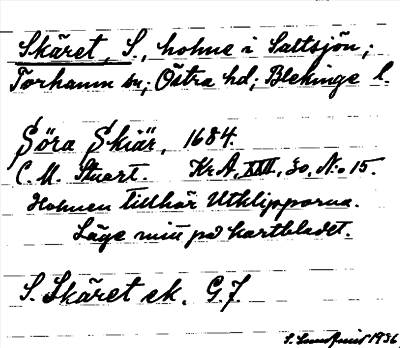 Skäret, S., holme i Saltsjön;
Torhamn sn; Östra hd; Blekinge l.
Söra Skiär, 1684.
C. M. Stuart. Kr A, XXII, 30, No 15.
Holmen tillhör Utklipporna.
Läge mitt på kartbladet.
S. Skäret ek. G7.
S. 1936